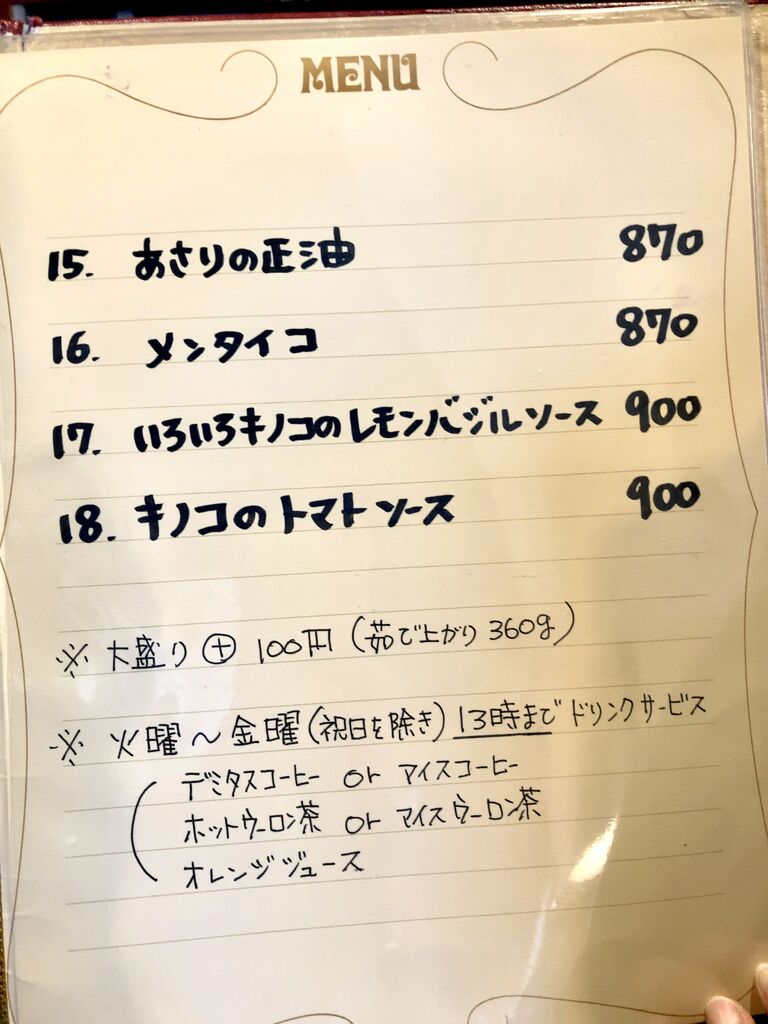 MENU
15. あさりの正油 870
16. メンタイコ 870
17. いろいろキノコのレモンバジルソース 900
18. キノコのトマトソース 900
※ 大盛り ⊕ 100円 (茹で上がり 360g)
※ 火曜〜金曜(祝日を除き) 13時まで ドリンクサービス
デミタスコーヒー or アイスコーヒー
ホットウーロン茶 or アイスウーロン茶
オレンジジュース